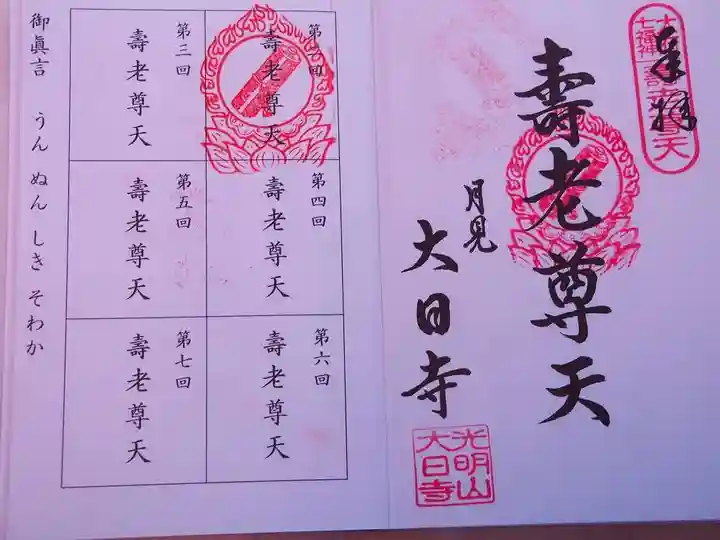 奉拜
壽老尊天
月見
大日寺
光明山
大日寺
壽老尊天
第四回
壽老尊天
第六回
壽老尊天
第三回
壽老尊天
第五回
壽老尊天
第七回
壽老尊天
御眞言 うん ぬん しき そわか